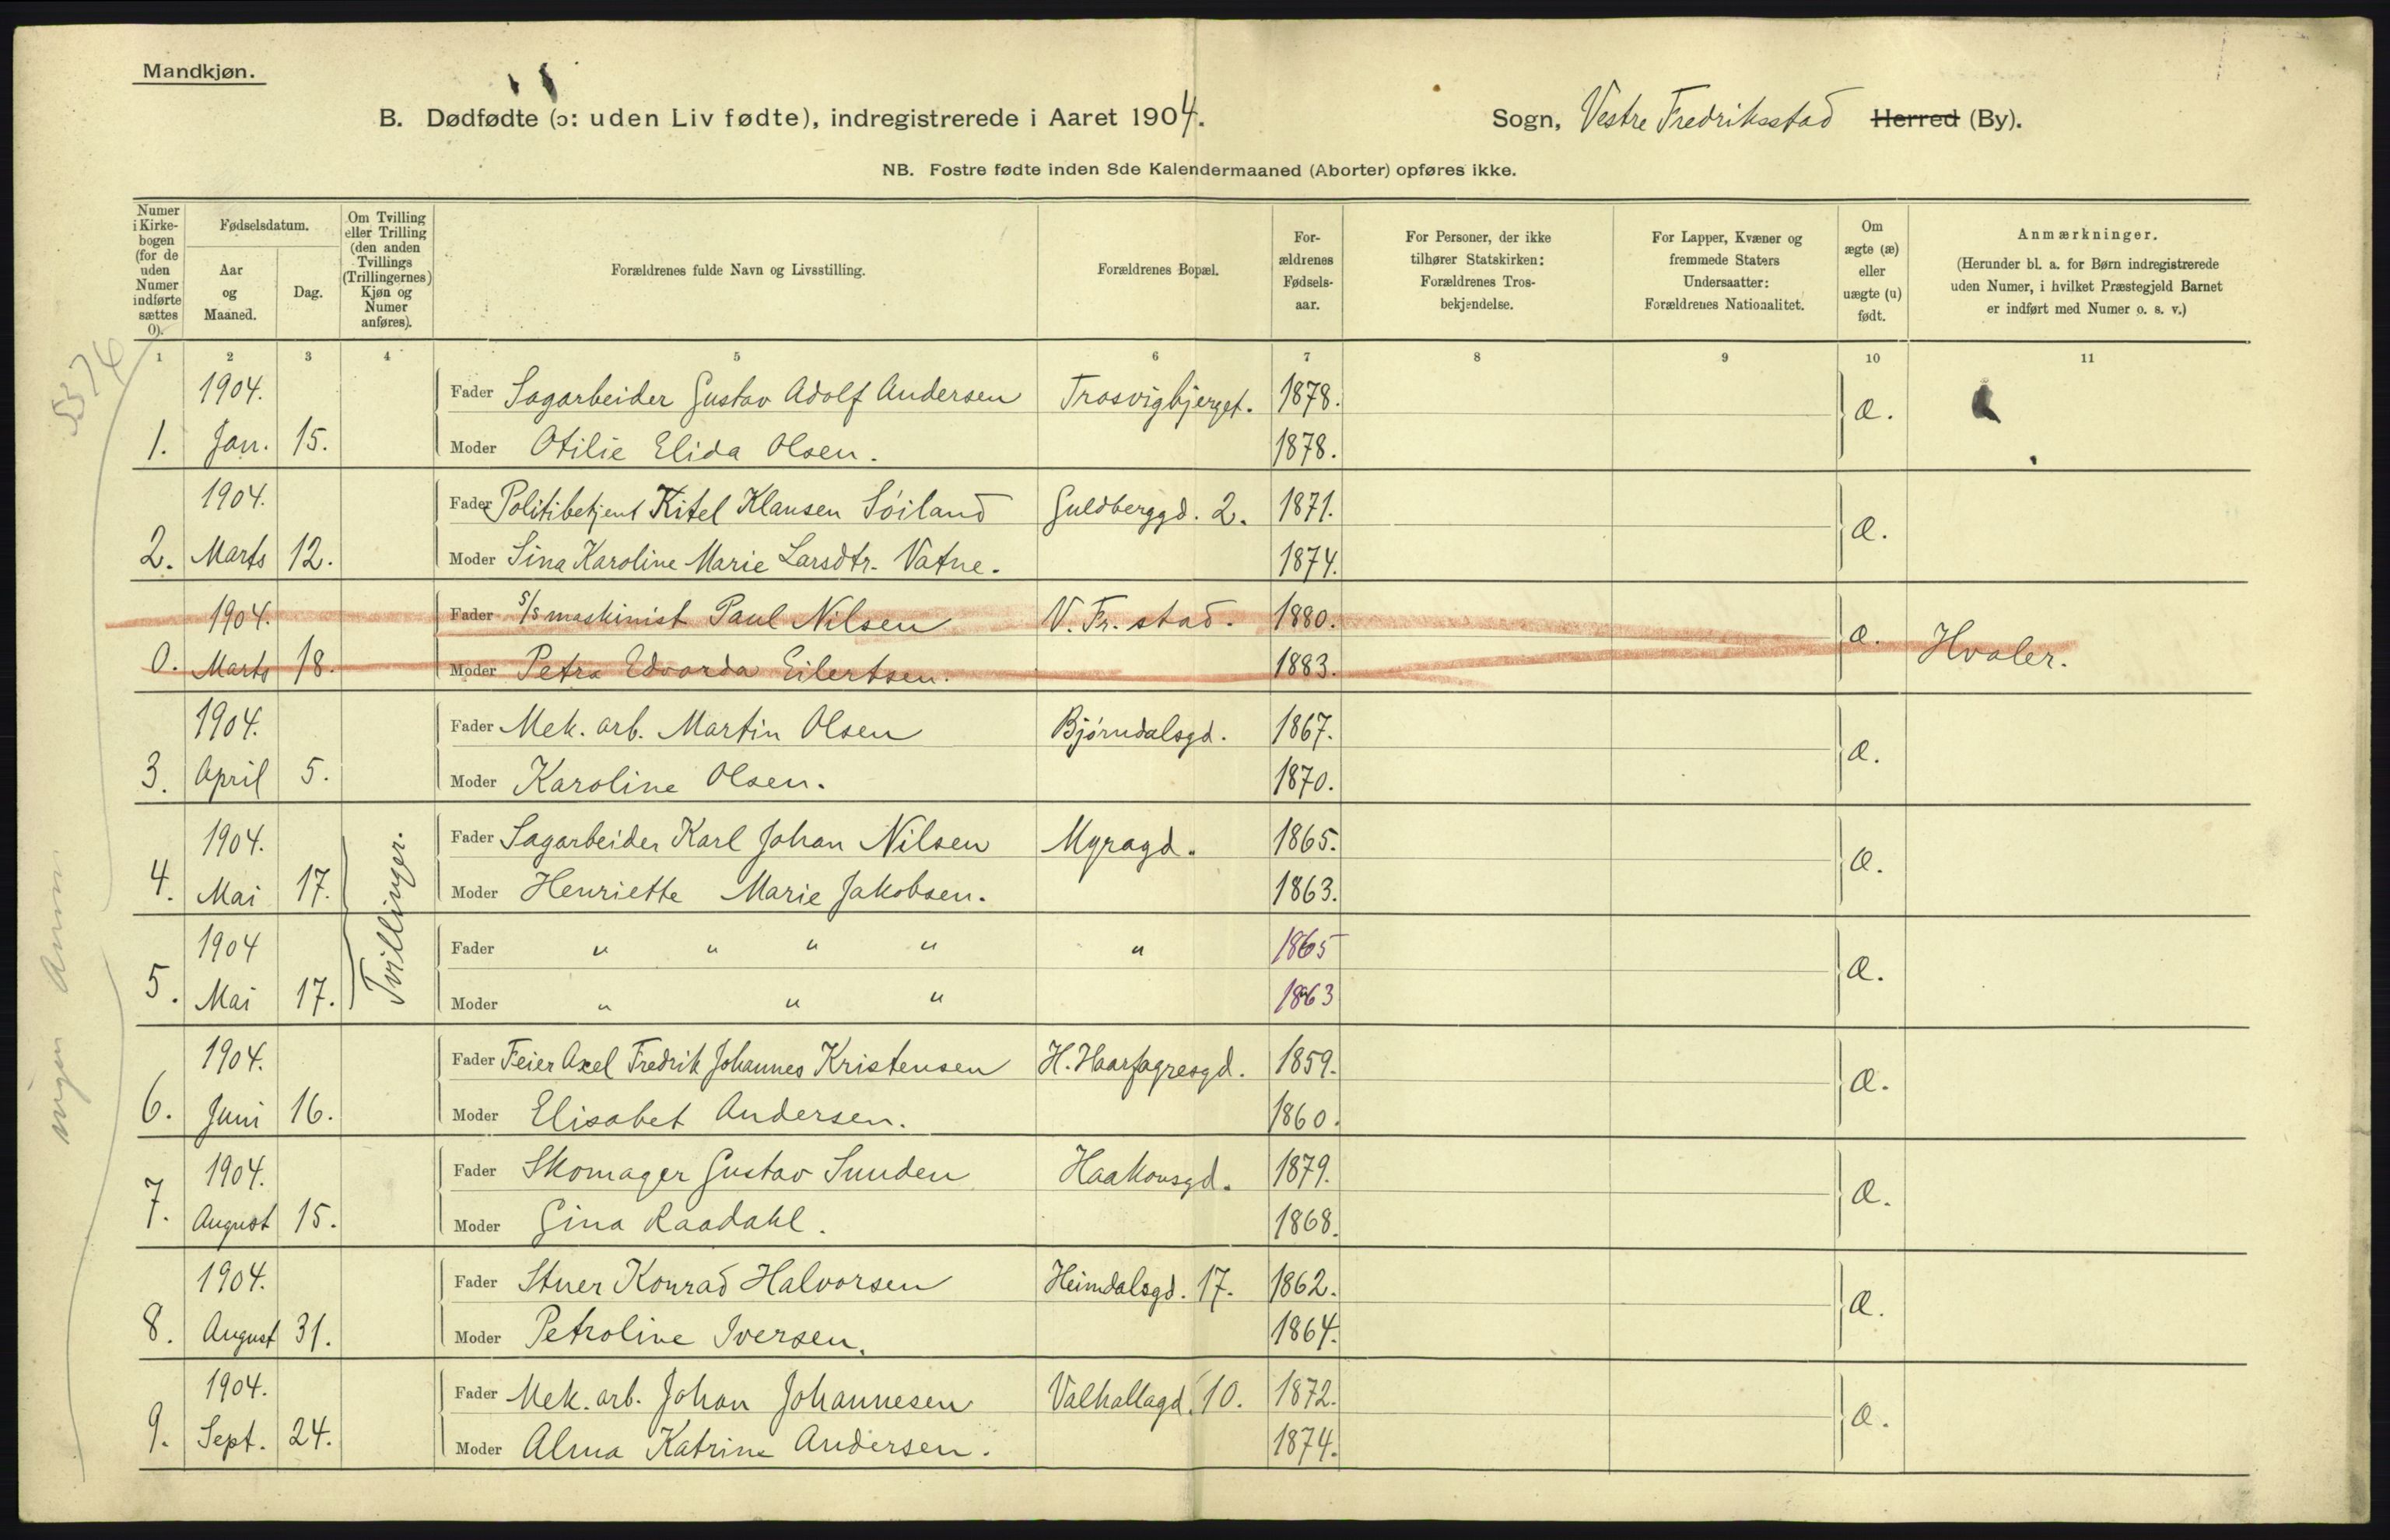 Mandkjøn.
B. Dødfødte (ɔ: uden Liv fødte), indregistrerede i Aaret 1904. Sogn, Vestre Fredriksstad Herred (By).
NB. Fostre fødte inden 8de Kalendermaaned (Aborter) opføres ikke.
Numer i Kirkebogen (for de uden Numer indførte sættes 0).
Fødselsdatum.
Aar og Maaned.
Dag.
Om Tvilling eller Trilling (den anden Tvillings (Trillingernes) Kjøn og Numer anføres).
Forældrenes fulde Navn og Livsstilling.
Forældrenes Bopæl.
Forældrenes Fødselsaar.
For Personer, der ikke tilhører Statskirken: Forældrenes Trosbekjendelse.
For Lapper, Kvæner og fremmede Staters Undersaatter: Forældrenes Nationalitet.
Om ægte (æ) eller uægte (u) født.
Anmærkninger.
(Herunder bl. a. for Børn indregistrerede uden Numer, i hvilket Præstegjeld Barnet er indført med Numer o. s. v.)
1 2 3 4 5 6 7 8 9 10 11
1904. Fader Sagarbeider Gustav Adolf Andersen Trosvigbjerget. 1878. æ.
1. Jan. 15. Moder Otilie Elida Olsen. 1878.
1904. Fader Politibetjent Kitel Klausen Söiland Guldberggd. 2. 1871. æ.
2. Marts 12. Moder Sina Karoline Marie Larsdtr. Vatne. 1874.
1904. Fader S/S maskinist Paul Nilsen V. Fr. stad. 1880. æ. Hvaler.
0. Marts 18. Moder Petra Edvarda Eilertsen. 1883.
1904. Fader Mek. arb. Martin Olsen Bjørndalsgd. 1867. æ.
3. April 5. Moder Karoline Olsen. 1870.
1904. Tvillinger. Fader Sagarbeider Karl Johan Nilsen Myragd. 1865. æ.
4. Mai 17. Moder Henriette Marie Jakobsen. 1863.
1904 Fader " " " " " 1865 æ.
5. Mai 17. Moder " " " 1863
1904. Fader Feier Axel Fredrik Johannes Kristensen H. Haarfagresgd. 1859. æ.
6. Juni 16. Moder Elisabet Andersen. 1860.
1904. Fader Skomager Gustav Sunden Haakonsgd. 1879. æ.
7. August 15. Moder Gina Raadahl. 1868.
1904. Fader Stuer Konrad Halvorsen Heimdalsgd. 17. 1862. æ.
8. August 31. Moder Petroline Iversen. 1864.
1904. Fader Mek. arb. Johan Johannesen Valhallagd. 10. 1872. æ.
9. Sept. 24. Moder Alma Katrine Andersen. 1874.